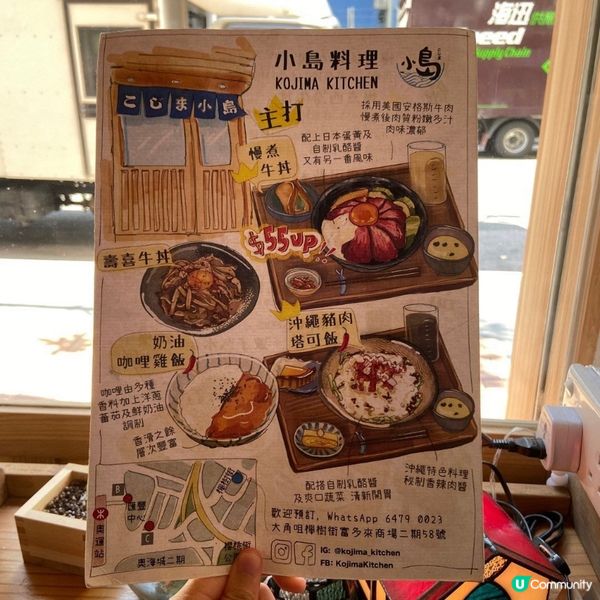 海迅供應
Supply Chain
小島料理
KOJIMA KITCHEN
小島
こじま小島
主打
採用美國安格斯牛肉
慢煮後肉質粉嫩多汁
肉味濃郁
配上日本蛋黃及
自制乳酪醬
又有另一番風味
慢煮
牛丼
$55UP!!
壽喜牛丼
奶油
咖哩雞飯
沖繩豬肉
塔可飯
咖哩由多種
香料加上洋蔥
蕃茄及鮮奶油
調制
香滑之餘
層次豐富
配搭自制乳酪醬
及爽口蔬菜 清新開胃
沖繩特色料理
秘制香辣肉醬
歡迎預訂, WhatsApp 6479 0023
大角咀櫸樹街富多來商場二期58號
IG: @kojima_kitchen
FB: KojimaKitchen
B
匯豐
中心
C
奧運站
奧海城二期
U Community